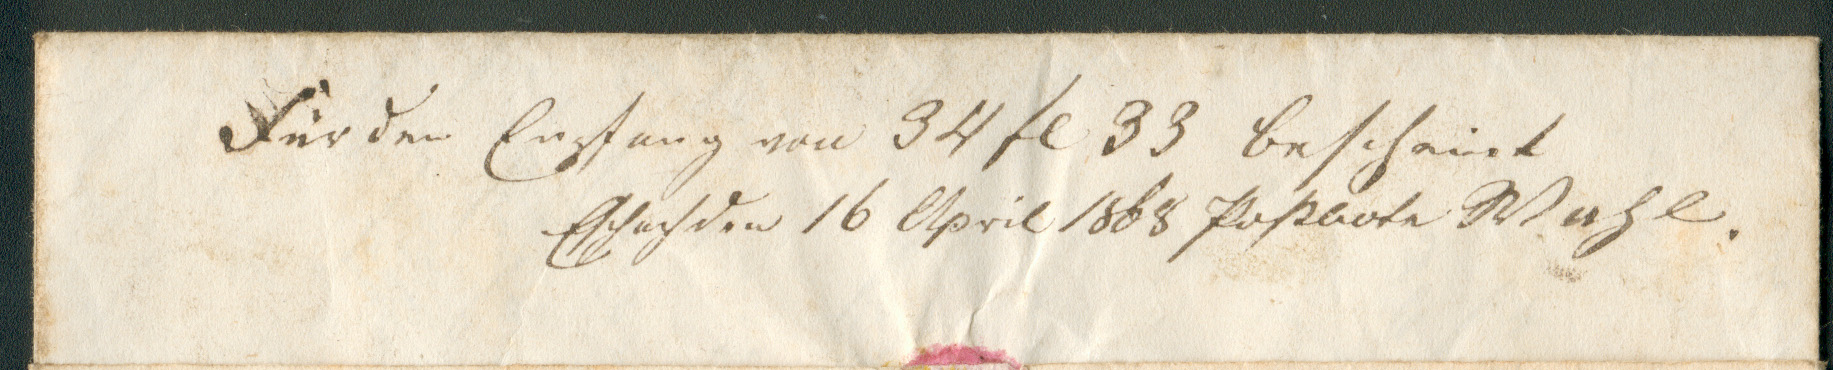 Für den Empfang von 34 fl 33 bescheint
Eschach den 16 April 1868 Postbote Wahl.